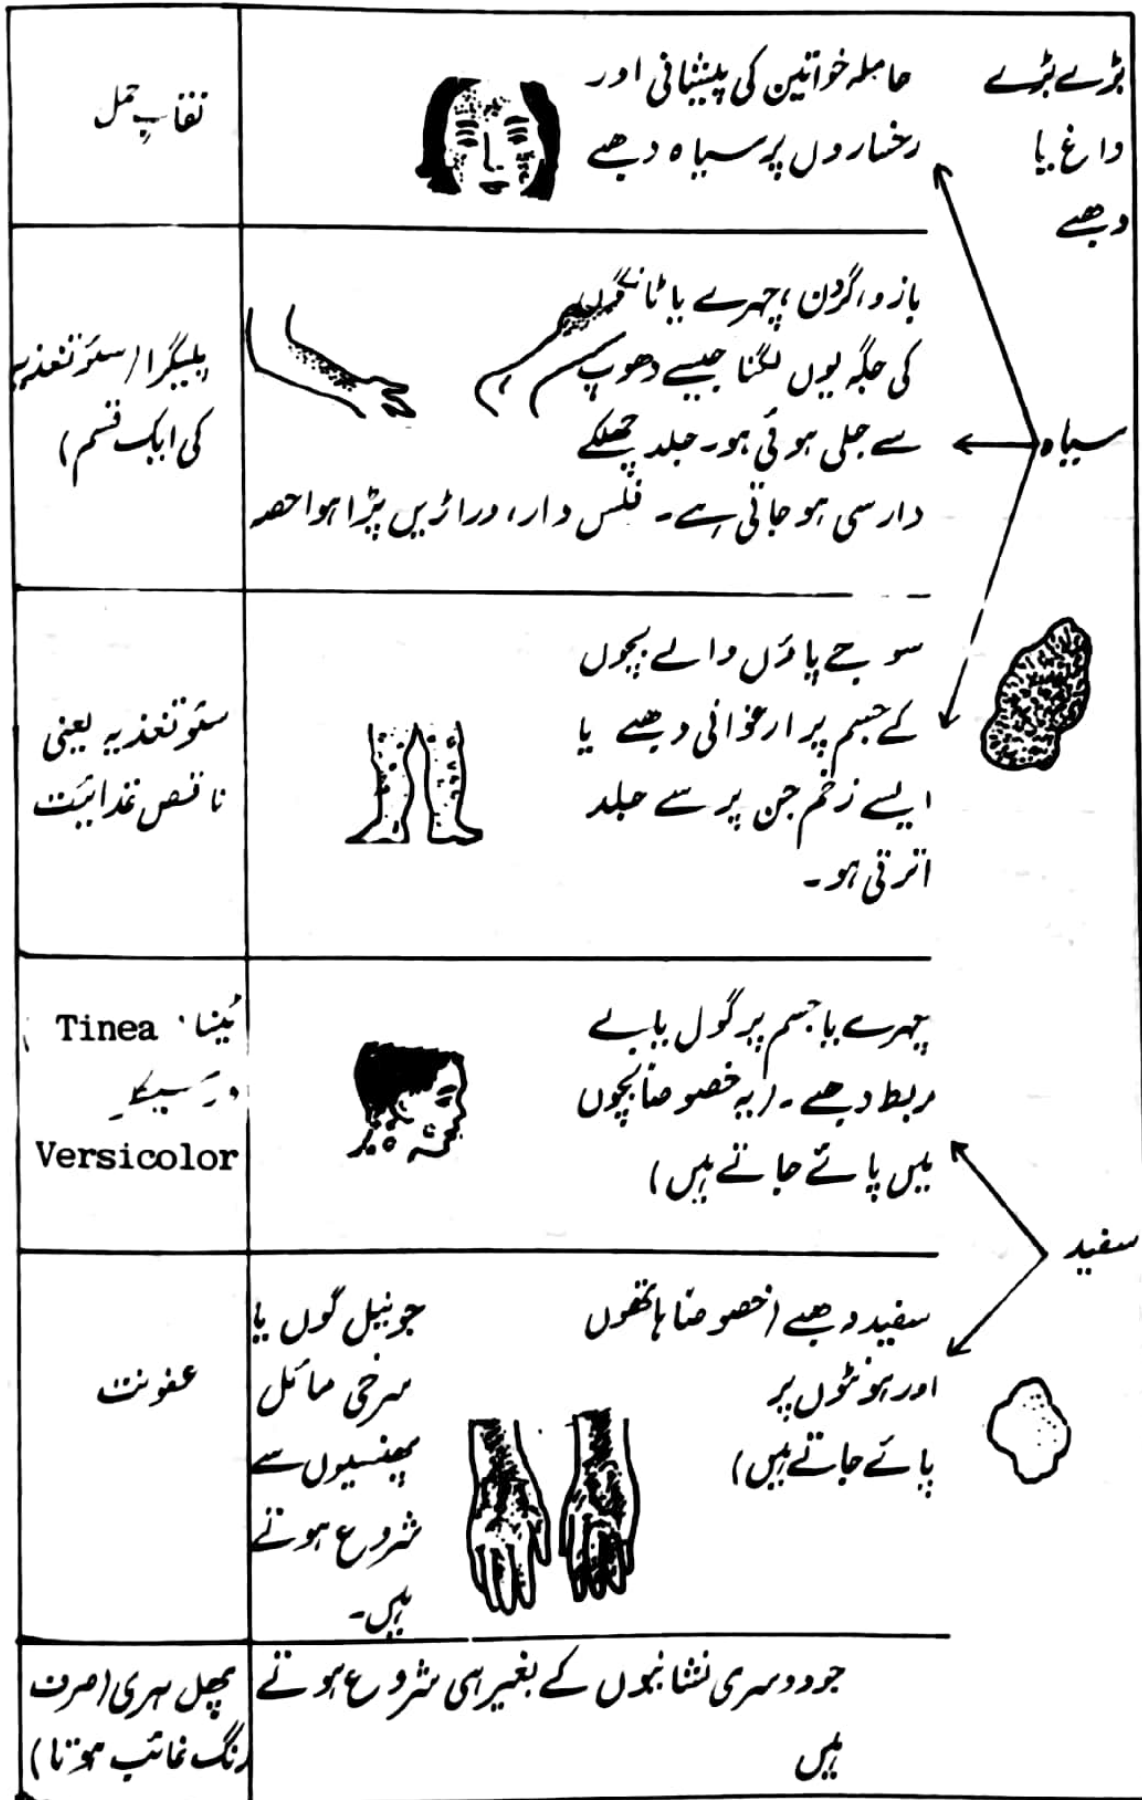 بڑے بڑے
داغ یا
دھبے
سیاہ
حاملہ خواتین کی پیشانی اور
رخساروں پر سیاہ دھبے
نقابِ حمل
بازو، گردن، چہرے یا ٹانگوں
کی جگہ یوں لگنا جیسے دھوپ
سے جلی ہوئی ہو۔ جلد چھلکے
دار سی ہو جاتی ہے۔ فلس دار، دراڑیں پڑا ہوا حصہ
پلیگرا (سئو تغذیہ
کی ایک قسم)
سوجے پاؤں والے بچوں
کے جسم پر ارغوانی دھبے یا
ایسے زخم جن پر سے جلد
اترتی ہو۔
سئو تغذیہ یعنی
ناقص غذائیت
سفید
چہرے یا جسم پر گول یا بے
ربط دھبے۔ (یہ خصوصاً بچوں
میں پائے جاتے ہیں)
ٹینا Tinea
ورسیکلر
Versicolor
سفید دھبے (خصوصاً ہاتھوں
اور ہونٹوں پر
پائے جاتے ہیں)
جو نیل گوں یا
سرخی مائل
پھنسیوں سے
شروع ہوتے
ہیں۔
عفونت
جو دوسری نشانیوں کے بغیر ہی شروع ہوتے
ہیں
پھل بہری (صرف
رنگ غائب ہوتا)